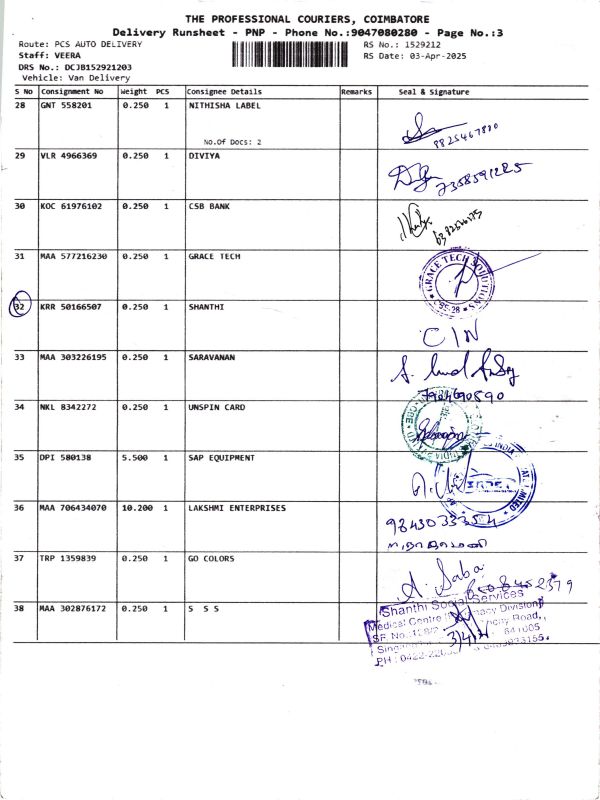 THE PROFESSIONAL COURIERS, COIMBATORE
Delivery Runsheet - PNP - Phone No.:9047080280 - Page No.:3
Route: PCS AUTO DELIVERY RS No.: 1529212
Staff: VEERA RS Date: 03-Apr-2025
DRS No.: DCJB152921203
Vehicle: Van Delivery
S No Consignment No Weight PCS Consignee Details Remarks Seal & Signature
28 GNT 558201 0.250 1 NITHISHA LABEL
No.Of Docs: 2
8825467880
29 VLR 4966369 0.250 1 DIVIYA
7358591285
30 KOC 61976102 0.250 1 CSB BANK
31 MAA 577216230 0.250 1 GRACE TECH
GRACE TECH SOLUTIONS
CBE-28
32 KRR 50166507 0.250 1 SHANTHI
CIN
33 MAA 303226195 0.250 1 SARAVANAN
7904690590
34 NKL 8342272 0.250 1 UNSPIN CARD
35 DPI 580138 5.500 1 SAP EQUIPMENT
36 MAA 706434070 10.200 1 LAKSHMI ENTERPRISES
9843033354
37 TRP 1359839 0.250 1 GO COLORS
A. Saba
38 MAA 302876172 0.250 1 S S S
Shanthi Social Services
Medical Centre (Pharmacy Division)
Road,
641005
PH : 0422-